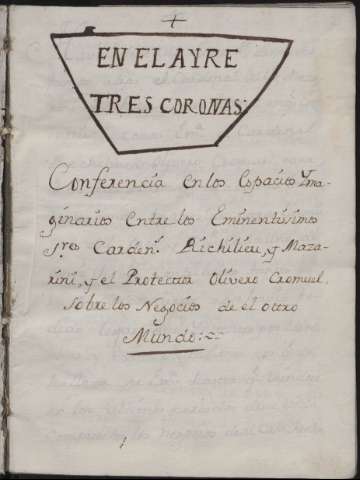 +
EN EL AYRE
TRES CORONAS.
Conferencia en los Espacios Yma-
ginarios entre los Eminentisimos
sres Cardens. Richilieu, y Maza-
rini, y el Protector Olivero Cromuel,
sobre los Negocios de el otro
Mundo.